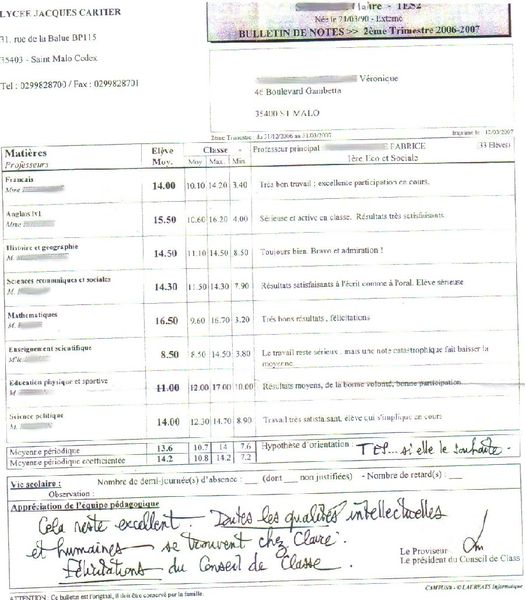 LYCEE JACQUES CARTIER
31, rue de la Balue BP115
35403 - Saint Malo Cedex
Tel : 0299828700 / Fax : 0299828701
Claire - 1ES2
Née le 21/03/90 - Externe
BULLETIN DE NOTES >> 2ème Trimestre 2006-2007
Véronique
46 Boulevard Gambetta
35400 ST MALO
2ème Trimestre du 31/12/2006 au 31/03/2007
Imprimé le 12/03/2007
Matières
Professeurs
Elève
Moy.
Classe -
Moy Max. Min
Professeur principal FABRICE (33 Elèves)
1ère Eco et Sociale
Francais
Mme
14.00 10.10 14.20 3.40 Très bon travail : excellente participation en cours.
Anglais lv1
Mme
15.50 10.60 16.20 4.00 Sérieuse et active en classe. Résultats très satisfaisants.
Histoire et geographie
M.
14.50 11.10 14.50 8.50 Toujours bien. Bravo et admiration !
Sciences économiques et sociales
M.
14.30 11.50 14.30 7.90 Résultats satisfaisants à l'écrit comme à l'oral. Elève sérieuse
Mathematiques
M.
16.50 9.60 16.70 3.20 Très bons résultats , félicitations
Enseignement scientifique
Mme
8.50 8.50 14.50 3.80 Le travail reste sérieux, mais une note catastrophique fait baisser la
moyenne
Education physique et sportive
M.
11.00 12.00 17.00 10.00 Résultats moyens, de la bonne volonté, bonne participation
Science politique
M.
14.00 12.30 14.70 8.90 Travail très satisfaisant, élève qui s'implique en cours
Moyenne périodique 13.6 10.7 14 7.6
Moyenne périodique coefficientée 14.2 10.8 14.2 7.2
Hypothèse d'orientation : TES... si elle le souhaite.
Vie scolaire : Nombre de demi-journée(s) d'absence : __ (dont __ non justifiées) - Nombre de retard(s) : __
Observation :
Appréciation de l'équipe pédagogique
Cela reste excellent. Toutes les qualités intellectuelles
et humaines se trouvent chez Claire.
Félicitations du Conseil de Classe.
Le Proviseur
Le président du Conseil de Class
ATTENTION : Ce bulletin est l'original, il doit être conservé par la famille.
CAMPUS® - © LAUREATS Informatique